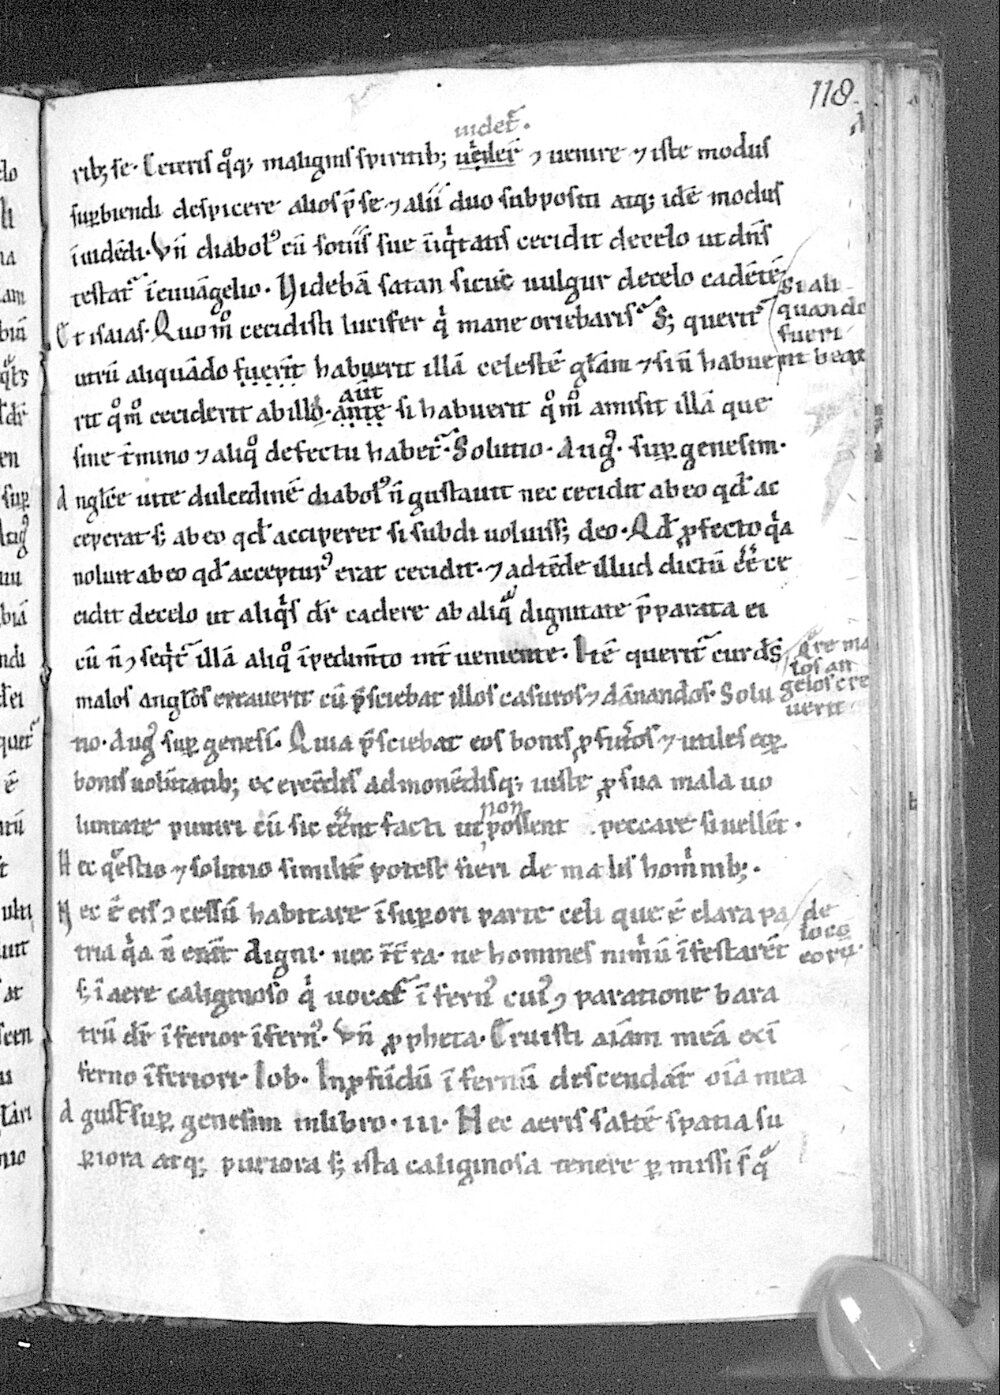 118
uidet᷑.
rib; se. Ceteris qͦq; malignis spiritib; ⁊ uenire ⁊ iste modus
suꝑbiendi despicere alios p̄ se ⁊ alii duo subpositi atq; idē modus
īuidēdi. Vn̄ diabolꝰ cū sotiis sue īiq̇tatis cecidit de celo ut dn̄s
testat᷑ ī euuāgelio. Videbā satan sicut uulgur de celo cadētē
Et isaias. Quo m̊ cecidisti lucifer q̇ mane oriebaris. S; querit᷑
Si ali
quando
fueri
nt beati
utrū aliquādo fuerit habuerit illā celestē gl̄am ⁊ si n̄ habue
aūt
rit qͦm̊ ceciderit ab illo. ante si habuerit qͦm̊ amisit illā que
sine t̄mino ⁊ aliqͦ defectu habet᷑. Solutio. Augꝰ. suꝑ genesim.
Anglēe uite dulcedinē diabolꝰ n̄ gustauit nec cecidit ab eo qd̄ ac
ceperat s; ab eo qd̄ acciperet si subdi uoluiss; deo. Qd̄ ꝓfecto q̇a
noluit ab eo qd̄ accepturꝰ erat cecidit. ⁊ ad tēde illud dictū eē ce
cidit de celo ut aliq̇s dr̄ cadere ab aliqͣ dignitate p̄parata ei
cū n̄ ꝯseq̇t᷑ illā aliqͦ īpedim̄to int̄ueniente. Itē querit᷑ cur d̄s
Qͣre ma
los an
gelos cre
uerit
malos angl̄os creauerit cū p̄sciebat illos casuros ⁊ dānandos. Solu
tio. Augꝰ suꝑ genesī. Quia p̄sciebat eos bonis ꝓfut᷑os ⁊ utiles
bonis uolūtatib; exercēdis admonēdisq; iuste ꝓ sua mala uo
non
luntate puniri cū sic eēnt facti ut possent peccare si uellēt.
Hec qͤstio ⁊ solutio similit̄ potest fieri de malis hom̄nib;.
Hec ē eis ꝯcessū habitare ī suꝑiori parte celi que ē clara pa
de
loco
eorū.
tria q̇a n̄ erāt digni. nec ī t̄ra. ne homines nim̄ū īfestarēt
s; ī aere caliginoso q̇ uocat᷑ īfernꝰ cuiꝰ ꝯparatione bara
trū dr̄ īferior īfernꝰ. Vn̄ ꝓpheta. Eruisti aīam meā ex ī
ferno īferiori. Iob. In ꝓfūdū īfernū descendāt oīa mea
Agust᷑ suꝑ genesim in libro. iii. Hec aeris saltē spatia su
ꝑiora atq; puriora s; ista caliginosa tenere ꝑmissi s̄ qͦ